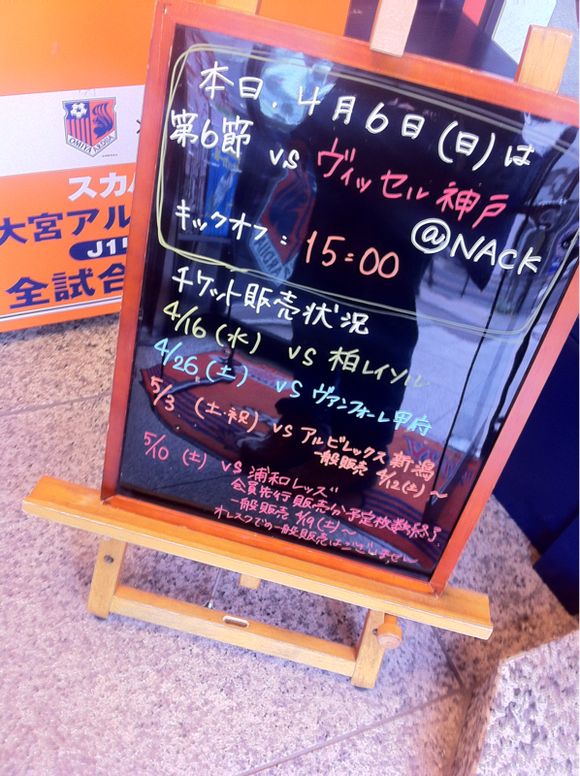 本日、4月6日(日)は
第6節 vs ヴィッセル神戸
@NACK
キックオフ: 15:00
チケット販売状況
4/16(水) vs 柏レイソル
4/26(土) vs ヴァンフォーレ甲府
5/3(土・祝) vs アルビレックス新潟
一般販売 4/12(土)〜
5/10(土) vs 浦和レッズ
会員先行販売分予定枚数終了
一般販売 4/19(土)〜
オレスクでの一般販売はございません
OMIYA ARDIJA
スカパ
大宮アル
J1リ
全試合